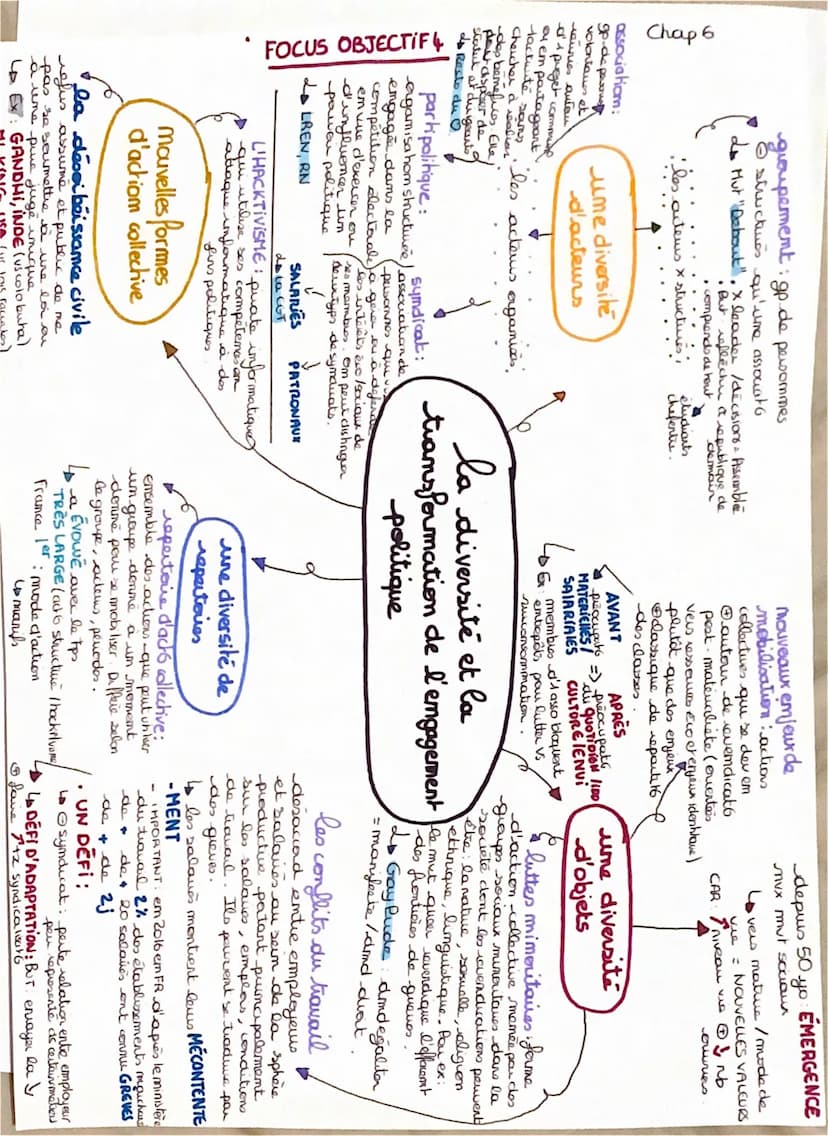 Chap 6
FOCUS OBJECTIF 4
la diversité et la
transformation de l'engagement
politique
une diversité
d'acteurs
les acteurs × structurés :
groupement : gp de personnes
⊖ structurés qu'une associatº
↳ Mvt "Debout"
. × leader / décisions = Assemblée
. But réfléchir à république de
demain
. comprends de tout
étudiants
les acteurs organisés
association :
gp de personnes
volontaires et
réunies autour
d'1 projet commun
ou en partageant
activité sans
chercher à réaliser
des bénéfices. Elle
peut disposer de
↳ Resto du ♡
parti politique :
organisation structurée
engagée dans la
compétition électorale
en vue d'exercer ou
d'influencer un
pouvoir politique
↳ LREN, RN
syndicat :
association de
personnes qui
à gérer ou à défendre
les intérêts éco/sociaux de
ses membres. On peut distinguer
2 types de syndicats.
SALARIÉS
↳ la CGT
PATRONAUX
nouvelles formes
d'action collective
L'HACKTIVISME : pirate informatique
qui utilise ses compétences en
attaque informatique à des
fins politiques.
la désobéissance civile
refus assumé et public de ne
pas se soumettre à une loi ou
à une jugé
↳ Ex : GANDHI, INDE
M. KING, USA
une diversité de
repertoires
repertoire d'actº collective :
ensemble des actions que peut utiliser
un groupe donné à un moment
donné pour se mobiliser. Diffère selon
le groupe, acteurs, périodes.
↳ a ÉVOLUÉ avec le tps
TRÈS LARGE (actº structuré / hacktivisme)
France 1er : mode d'action
↳ manifs
une diversité
d'objets
nouveaux enjeux de
mobilisation : actions
collectives qui se dev en
⊕ autour de revendicatº
post-matérialiste (orientées
vers ressources éco et enjeux identitaire)
plutôt que des enjeux
⊕ classique de repartitº
des classes.
AVANT
préoccupatº
MATERIELLES /
SALARIALES
=>
APRÈS
préoccupatº
du QUOTIDIEN /
CULTURE / ENVI
↳ Ex : membres d'1 asso bloquent
entrepôts pour lutter vs
surconsommation.
depuis 50 ans : ÉMERGENCE
nvx mvt sociaux
↳ vers nature / mode de
vie = NOUVELLES VALEURS
CAR : ↗ niveau vie ⊕ ↘ Nb
ouvriers.
luttes minoritaires : forme
d'action collective menée par des
groupes sociaux minoritaires dans la
société dont les revendications peuvent
être : la nature, sexuelle, religion
ethnique, linguistique. Par ex :
le mvt queer revendique l'effacement
des frontières de genres.
↳ GayPride : dmd égalité
= manifeste / dmd droit.
les conflits du travail
désaccord entre employeurs
et salariés au sein de la sphère
productive portant principalement
sur les salaires, emplois, conditions
de travail. Ils peuvent se traduire par
des grèves.
↳ les salariés montrent leurs MÉCONTENTE
-MENT
- IMPORTANT : en 2016 en FR d'après le ministère
du travail 2% des établissements
de + de 20 salariés ont connu GRÈVES
de + de 2j
• UN DÉFI :
↳ ⊖ syndicat : perte relation entre employeur
↳ DÉFI D'ADAPTATION : But : enrayer la ↘
⊕ faire ↗ syndicalisatº